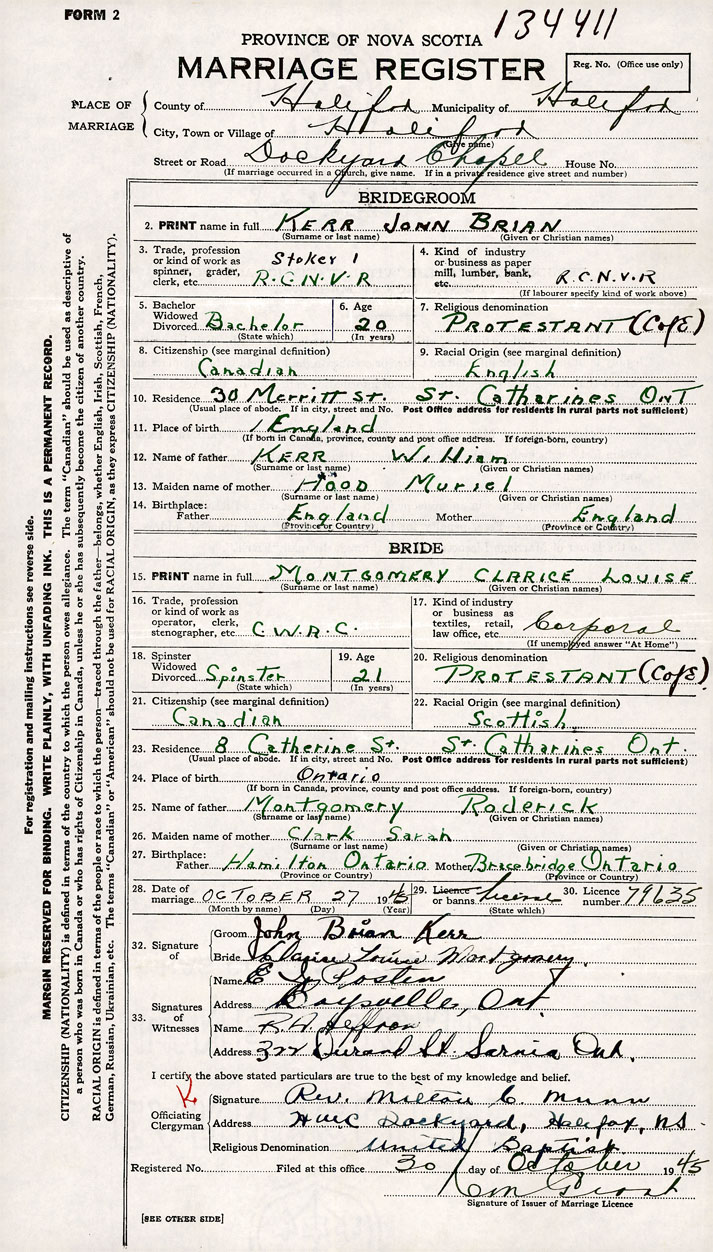 FORM 2
134411
PROVINCE OF NOVA SCOTIA
MARRIAGE REGISTER
Reg. No. (Office use only)
PLACE OF MARRIAGE
County of Halifax Municipality of Halifax
City, Town or Village of Halifax
(Give name)
Street or Road Dockyard Chapel House No.
(If marriage occurred in a Church, give name. If in a private residence give street and number)
BRIDEGROOM
2. PRINT name in full KERR JOHN BRIAN
(Surname or last name) (Given or Christian names)
3. Trade, profession or kind of work as spinner, grader, clerk, etc. Stoker 1 R.C.N.V.R
4. Kind of industry or business as paper mill, lumber, bank, etc. R.C.N.V.R
(If labourer specify kind of work above)
5. Bachelor Widowed Divorced Bachelor
(State which)
6. Age 20
(In years)
7. Religious denomination PROTESTANT (C of E)
8. Citizenship (see marginal definition) Canadian
9. Racial Origin (see marginal definition) English
10. Residence 30 Merritt St. St. Catharines ONT
(Usual place of abode. If in city, street and No. Post Office address for residents in rural parts not sufficient)
11. Place of birth England
(If born in Canada, province, county and post office address. If foreign-born, country)
12. Name of father KERR William
(Surname or last name) (Given or Christian names)
13. Maiden name of mother HOOD Muriel
(Surname or last name) (Given or Christian names)
14. Birthplace: Father England Mother England
(Province or Country) (Province or Country)
BRIDE
15. PRINT name in full MONTGOMERY CLARICE LOUISE
(Surname or last name) (Given or Christian names)
16. Trade, profession or kind of work as operator, clerk, stenographer, etc. C.W.A.C.
17. Kind of industry or business as textiles, retail, law office, etc. Corporal
(If unemployed answer "At Home")
18. Spinster Widowed Divorced Spinster
(State which)
19. Age 21
(In years)
20. Religious denomination PROTESTANT (C of E)
21. Citizenship (see marginal definition) Canadian
22. Racial Origin (see marginal definition) Scottish
23. Residence 8 Catherine St. St. Catharines Ont.
(Usual place of abode. If in city, street and No. Post Office address for residents in rural parts not sufficient)
24. Place of birth Ontario
(If born in Canada, province, county and post office address. If foreign-born, country)
25. Name of father Montgomery Roderick
(Surname or last name) (Given or Christian names)
26. Maiden name of mother Clark Sarah
(Surname or last name) (Given or Christian names)
27. Birthplace: Father Hamilton Ontario Mother Bracebridge Ontario
(Province or Country) (Province or Country)
28. Date of marriage OCTOBER 27 1945
(Month by name) (Day) (Year)
29. Licence or banns license
(State which)
30. Licence number 79635
32. Signature of
Groom John Brian Kerr
Bride Clarice Louise Montgomery
33. Signatures of Witnesses
Name E Posten
Address Baysville, Ont.
Name R.H. Heffron
Address 322 Durand St. Sarnia Ont.
I certify the above stated particulars are true to the best of my knowledge and belief.
K
Officiating Clergyman
Signature Rev. Milton C. Munn
Address HMC Dockyard, Halifax, NS.
Religious Denomination United Baptist
Registered No. Filed at this office 30 day of October 1945
Signature of Issuer of Marriage Licence
[SEE OTHER SIDE]
For registration and mailing instructions see reverse side.
MARGIN RESERVED FOR BINDING. WRITE PLAINLY, WITH UNFADING INK. THIS IS A PERMANENT RECORD.
CITIZENSHIP (NATIONALITY) is defined in terms of the country to which the person owes allegiance. The term "Canadian" should be used as descriptive of
a person who was born in Canada or who has rights of Citizenship in Canada, unless he or she has subsequently become the citizen of another country.
RACIAL ORIGIN is defined in terms of the people or race to which the person—traced through the father—belongs, whether English, Irish, Scottish, French,
German, Russian, Ukrainian, etc. The terms "Canadian" or "American" should not be used for RACIAL ORIGIN, as they express CITIZENSHIP (NATIONALITY).